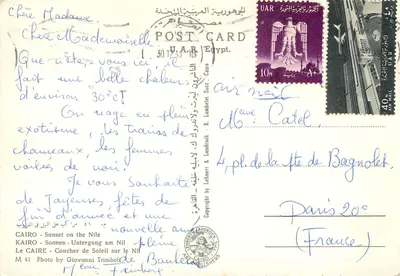 Chère Madame,
Chère Mademoiselle
Que n'êtes vous ici, il
fait une belle chaleur
d'environ 30°C!
On nage en plein
exotisme, les trains de
chameaux, les femmes
voilées de noir.
Je vous souhaite
de joyeuses fêtes de
fin d'année et une
nouvelle année
pleine
de Bonheur
CAIRO - Sunset on the Nile
KAIRO - Sonnen - Untergang am Nil
Le CAIRE - Coucher de Soleil sur le Nil
M 41 Photo by Giovanni
الجمهورية العربية المتحدة
POST CARD
U.A.R. Egypt.
Copyright by Lehnert & Landrock - K. Lambelet Succ. Cairo
UAR
10M
UAR
40
air mail
Mme Catel
4, pl. de la Pte de Bagnolet
Paris 20e
(France)